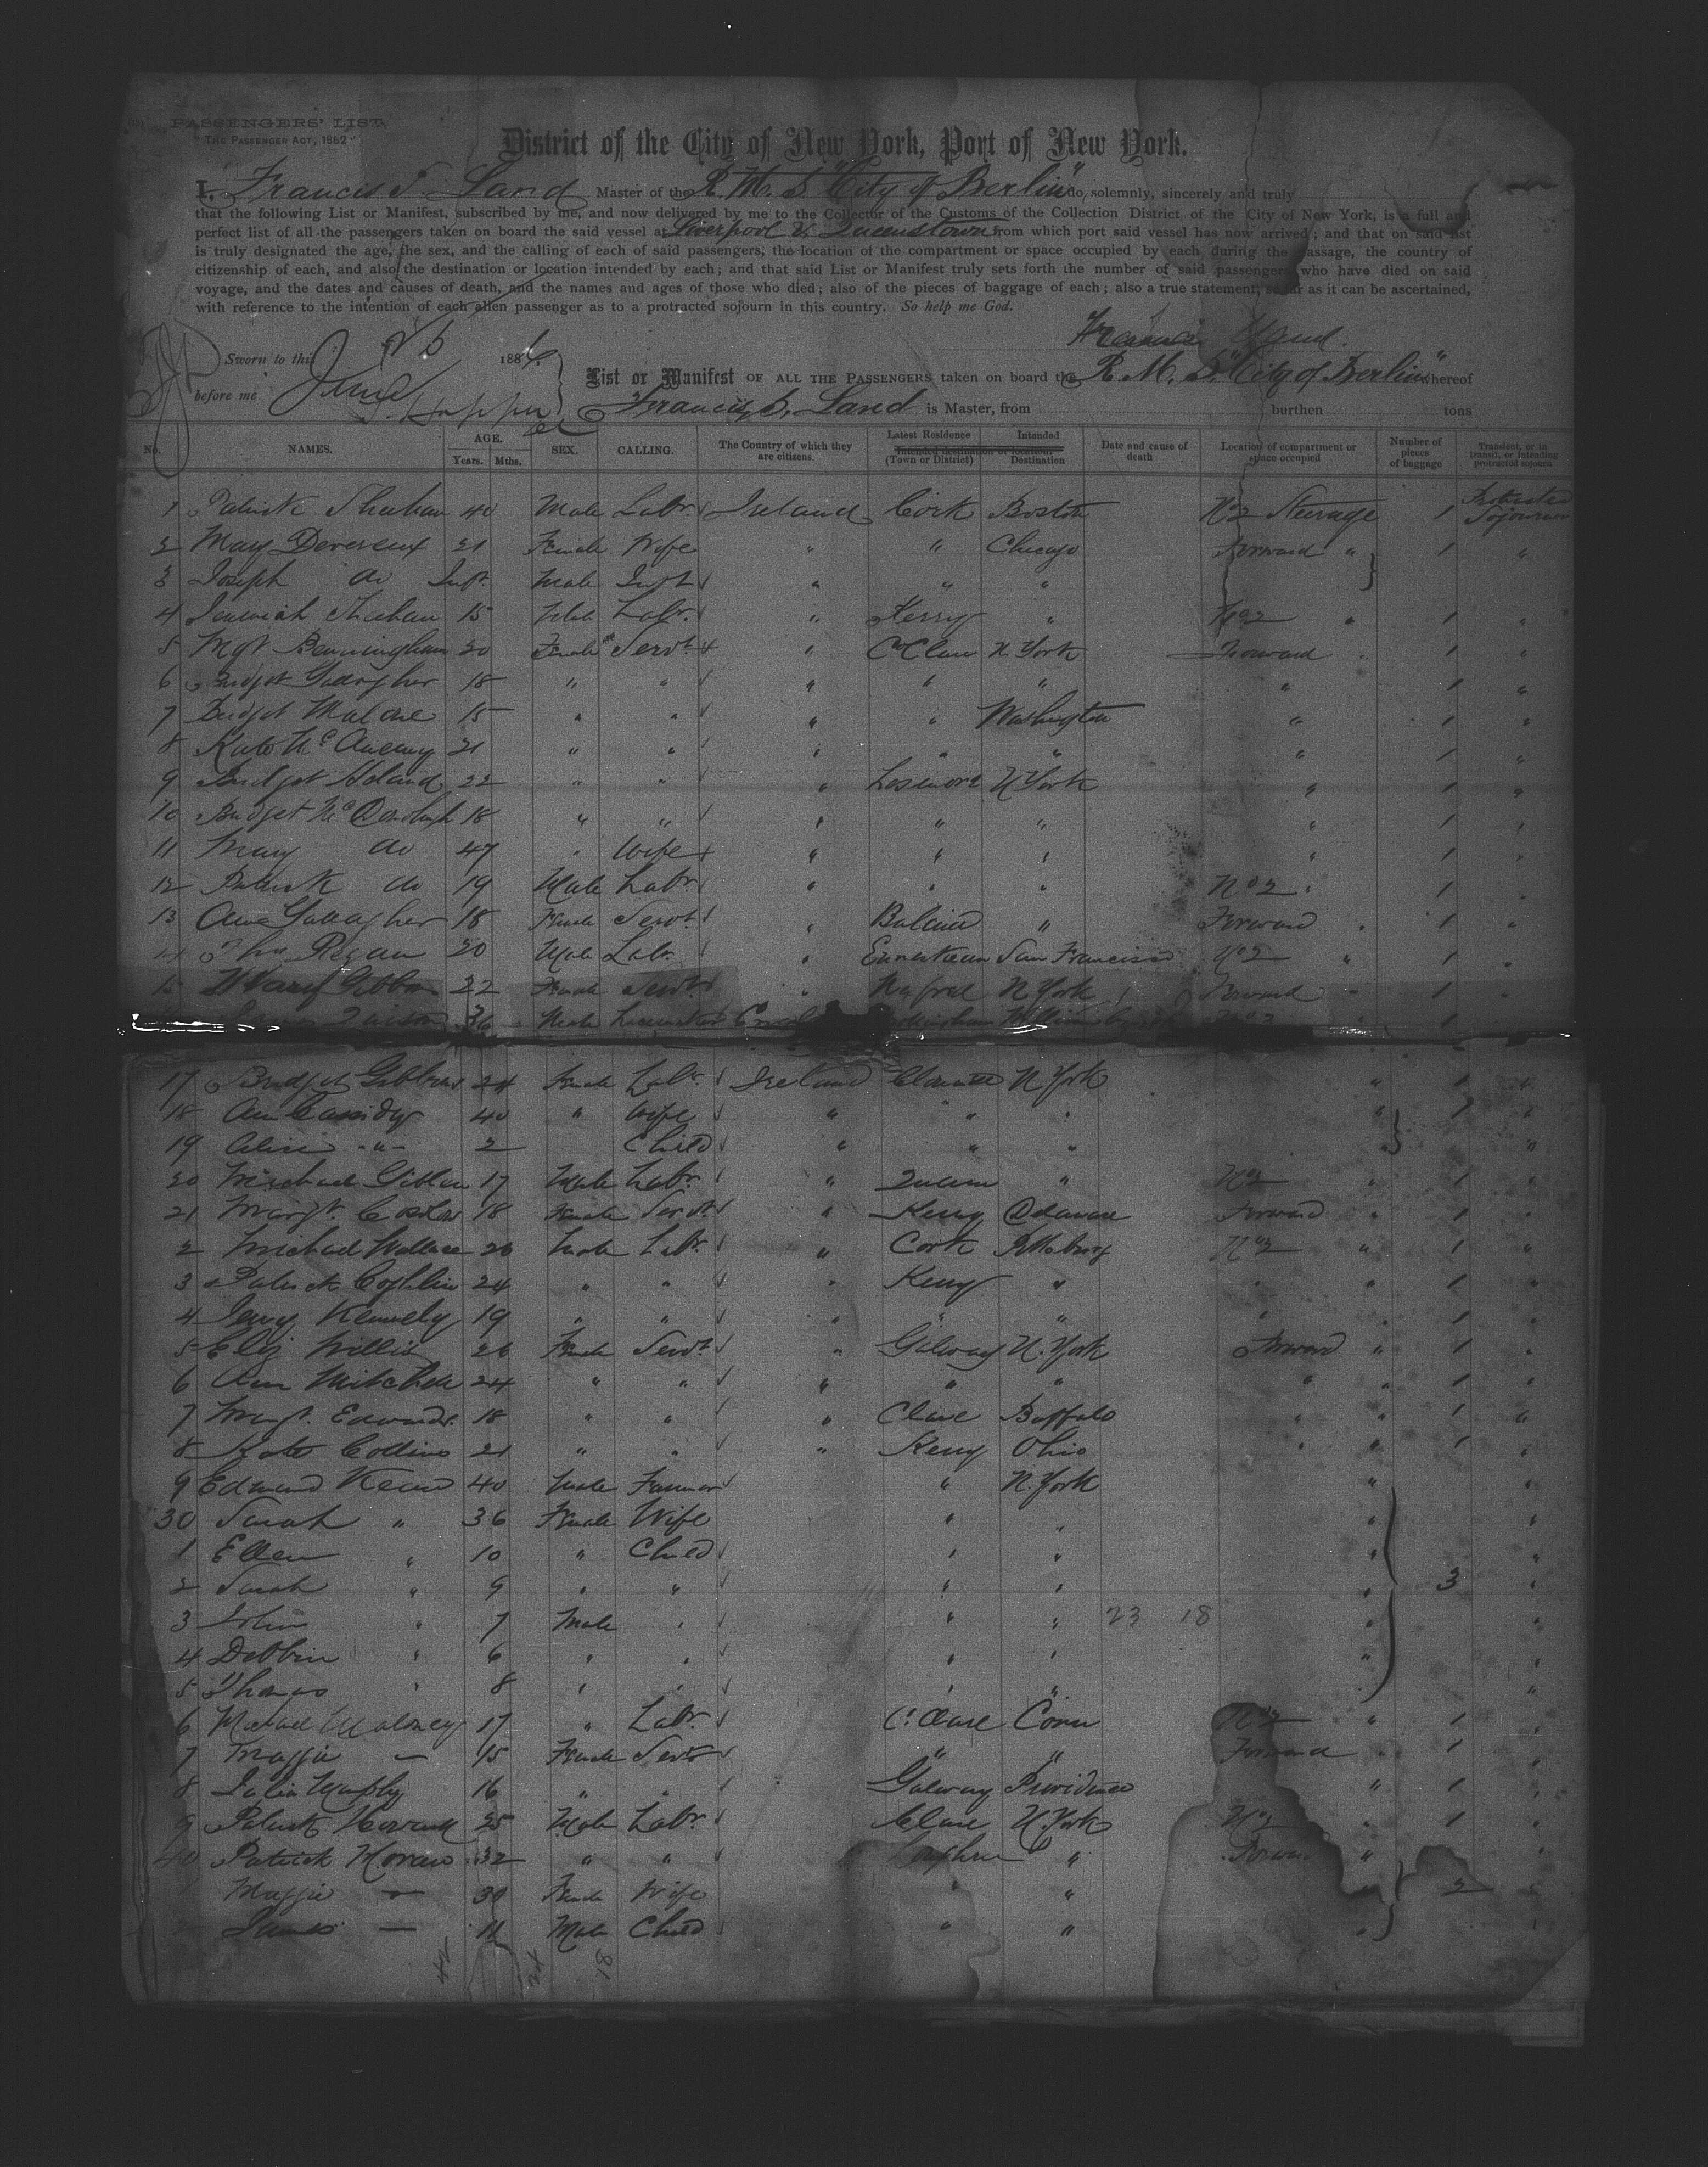 PASSENGERS' LIST.
"THE PASSENGER ACT, 1882"
District of the City of New York, Port of New York.
I, Francis S. Land Master of the R. M. S "City of Berlin" do, solemnly, sincerely and truly
that the following List or Manifest, subscribed by me, and now delivered by me to the Collector of the Customs of the Collection District of the City of New York, is a full and
perfect list of all the passengers taken on board the said vessel at Liverpool & Queenstown from which port said vessel has now arrived; and that on said list
is truly designated the age, the sex, and the calling of each of said passengers, the location of the compartment or space occupied by each during the passage, the country of
citizenship of each, and also the destination or location intended by each; and that said List or Manifest truly sets forth the number of said passengers who have died on said
voyage, and the dates and causes of death, and the names and ages of those who died; also of the pieces of baggage of each; also a true statement, so far as it can be ascertained,
with reference to the intention of each alien passenger as to a protracted sojourn in this country. So help me God.
Francis Land.
Sworn to this 188
before me June
List or Manifest OF ALL THE PASSENGERS taken on board the R. M. S. "City of Berlin" whereof
Francis S. Land is Master, from burthen tons
No. NAMES. AGE. Years. Mths. SEX. CALLING. The Country of which they are citizens. Latest Residence (Town or District) Intended Destination Intended destination or location Date and cause of death Location of compartment or space occupied Number of pieces of baggage Transient, or in transit, or intending protracted sojourn
1 Patrick Sheehan 40 Male Labr. Ireland Cork Boston No 2 Steerage 1 Protracted Sojourn
2 May Devereux 21 Female Wife " " Chicago Forward " 1 "
3 Joseph do Inft. Male Inft " " "
4 Jeremiah Sheehan 15 Male Labr. " Kerry " No 2 " 1 "
5 Mgt Benningham 20 Female Servt " Co Clare N York Forward " 1 "
6 Bridget Gallagher 18 " " " " " " 1 "
7 Bridget Malone 15 " " " " Washington " 1 "
8 Kate Mc 21 " " " " " " 1 "
9 Bridget Holand 22 " " " N York " 1 "
10 Bridget McDonough 18 " " " " " " 1 "
11 Mary do 47 " Wife " " " " 1 "
12 Patrick do 19 Male Labr. " " " No 2 " 1 "
13 Gallagher 18 Female Servt. " " Forward " 1 "
14 Thos Regan 20 Male Labr. " San Francisco No 2 " 1 "
15 Mary Gibbon 22 Female Servt " N York Forward " 1 "
36 Male
17 Bridget Gibbons 24 Female Labr. Ireland N York " 1 "
18 Ann Cassidy 40 " Wife " " " " 1 "
19 Alice " 2 Child " " " "
20 Michael Giblan 17 Male Labr. " " No 2 " 1 "
21 Margt. 18 Female Servt. " Kerry Delaware Forward " 1 "
2 Michael Wallace 26 Male Labr. " Cork Pittsburg No 2 " 1 "
3 Patrick Coghlin 24 " " " Kerry " " " 1 "
4 Jerry Kennely 19 " " " " " " " 1 "
5 Eliz Willis 26 Female Servt " Galway N. York Forward " 1 "
6 Ann Mitchell 24 " " " " " " " 1 "
7 Margt. Edwards. 18 " " " Clare Buffalo " " 1 "
8 Kate Collins 21 " " " Kerry Ohio " " 1 "
9 Edmund Keane 40 Male Farmer " N. York " "
30 Sarah " 36 Female Wife " " " "
1 Ellen " 10 " Child " " " "
2 Sarah " 9 " " " " " 3 "
3 John " 7 Male " " " 23 18 " "
4 Debbin " 6 " " " " " "
5 Thomas " 8 " " " " " "
6 Michael Maloney 17 " Labr. C. Clare Conn No 2 " 1 "
7 Maggie — 15 Female Servt " " Forward " 1 "
8 Julia Murphy 16 " " Galway Providence " 1 "
9 Patrick 25 Male Labr. Clare N. York No 2 " 1 "
40 Patrick Moran 32 " " " Forward "
Maggie — 30 Female Wife " " 2 "
James — 11 Male Child " " " "
42 24 18